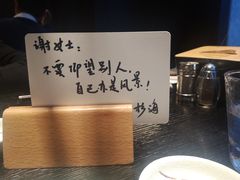 谢女士：
不要仰望别人，
自己亦是风景！
杉海